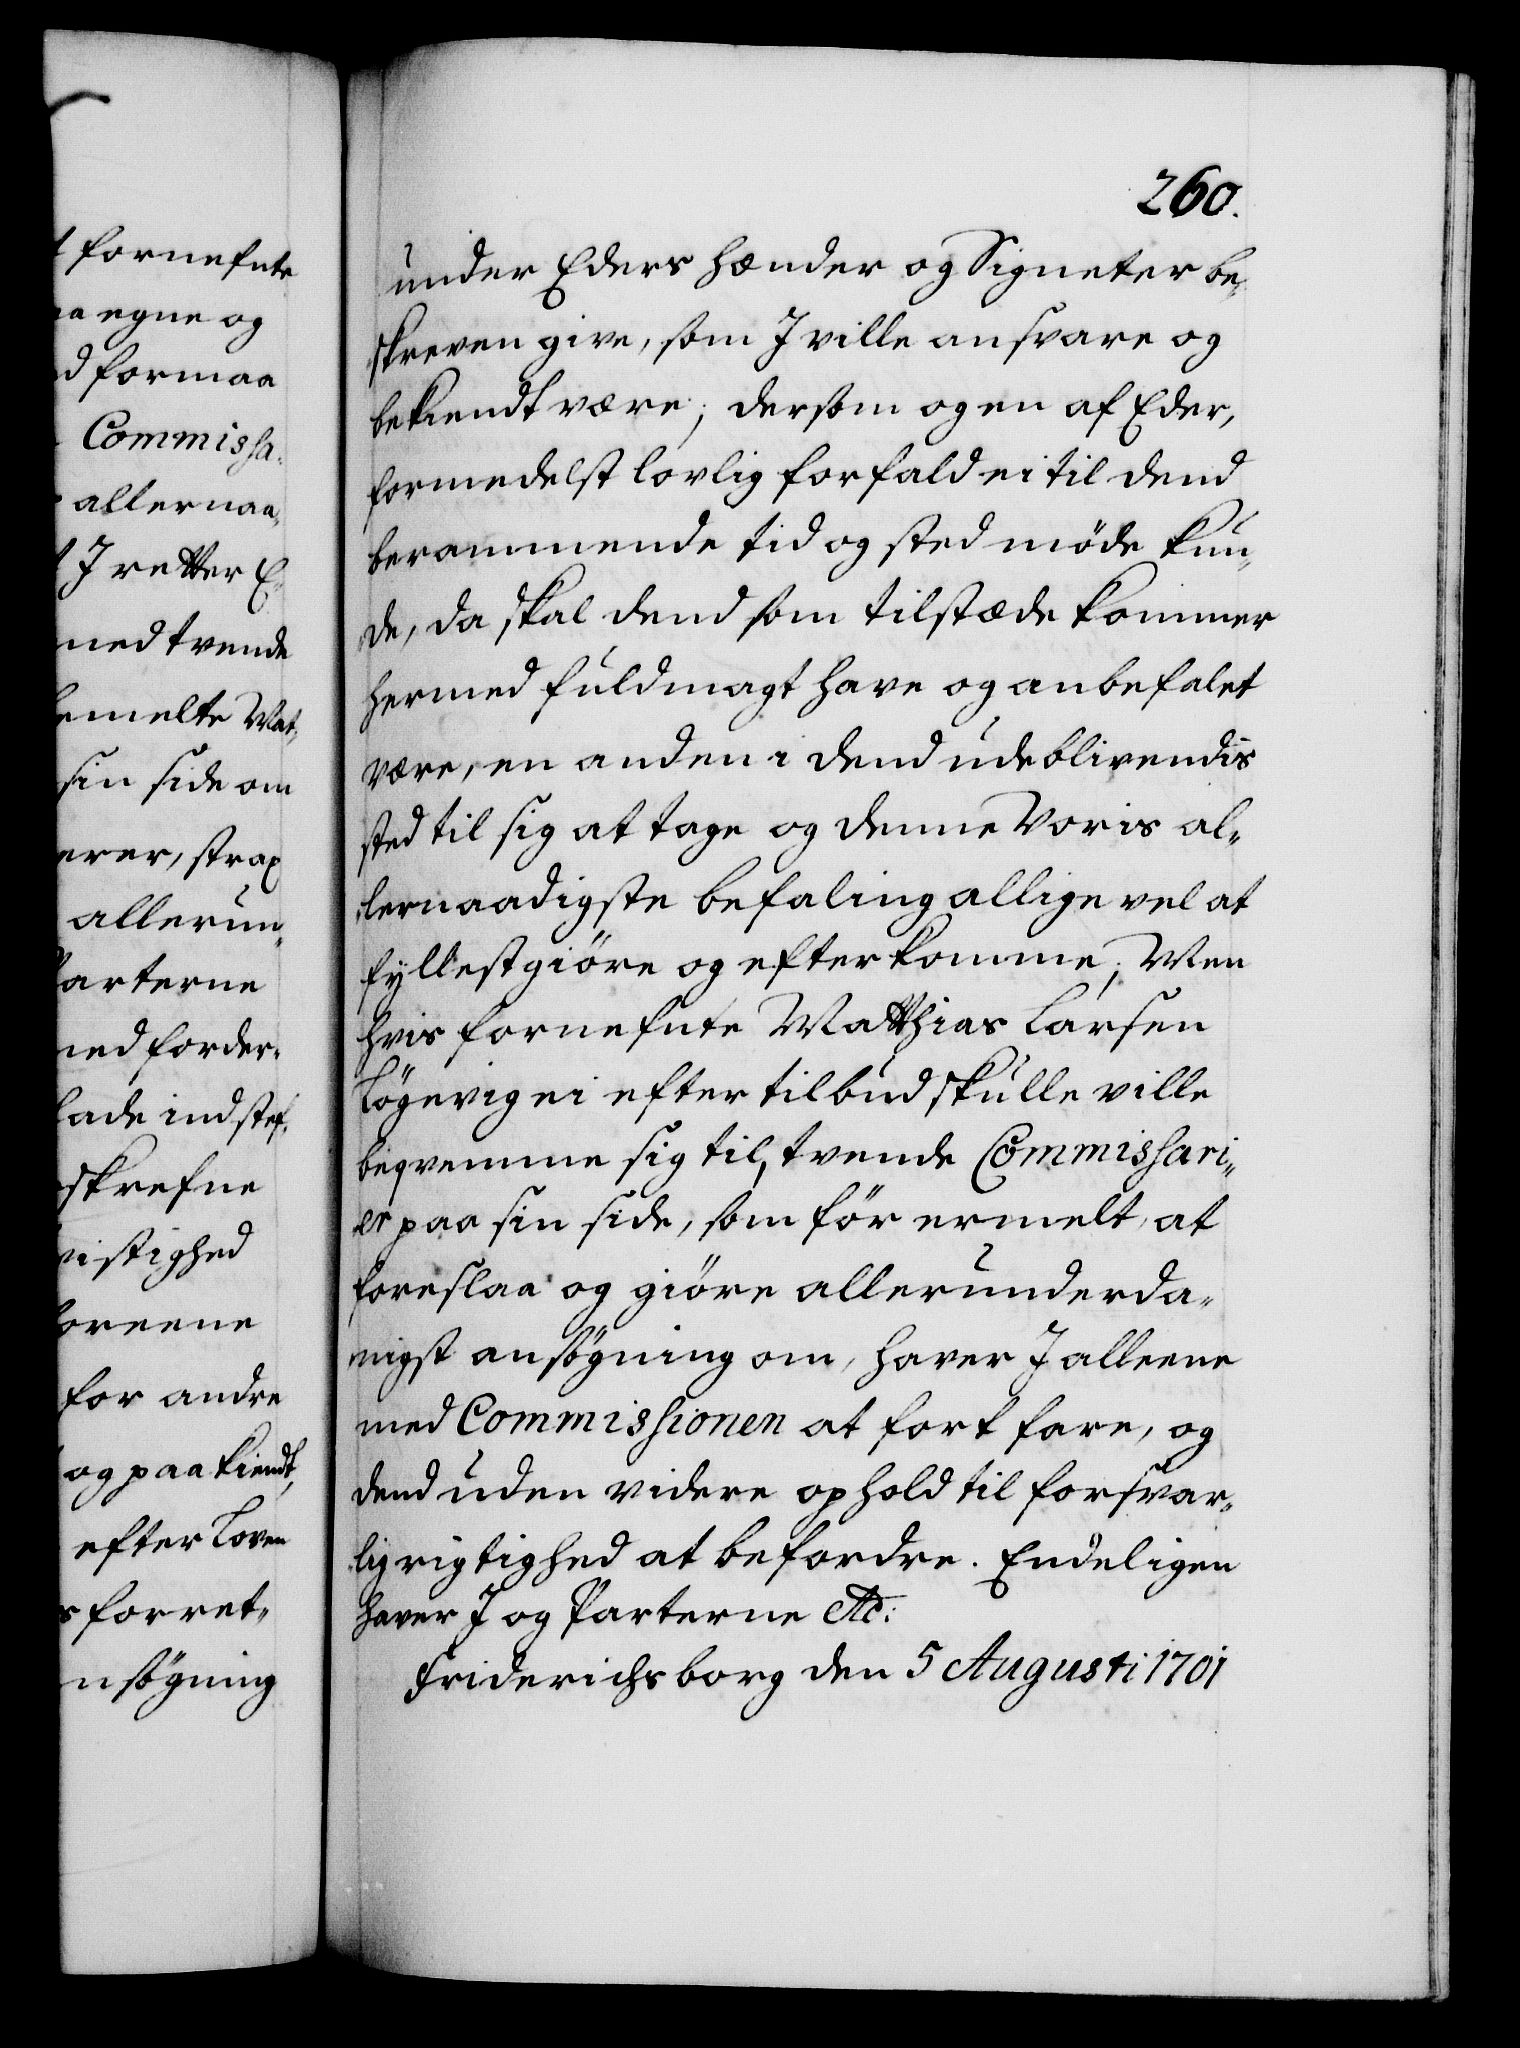 260.
under Eders hænder og Signeter be-
skreven give, som I ville ansvare og
bekiendt være; dersom og en af Eder,
formedelst lovlig forfald ei til dend
berammende tid og sted møde kun-
de, da skal dend som tilstæde kommer
hermed fuldmagt have og anbefalet
være, en anden i dend udeblivendis
sted til sig at tage og denne Voris al-
lernaadigste befaling alligevel at
fyllestgiöre og efterkomme; Men
hvis fornefnte Matthias Larsen
Lögevig ei efter tilbud skulle ville
beqvemme sig til, tvende Commissari-
er paa sin side, som för ermelt, at
foreslaa og giöre allerunderda-
nigst ansögning om, haver I alleene
med Commissionen at fortfare, og
dend uden videre ophold til forsvar-
lig rigtighed at befordre. Endeligen
haver I og Parterne etc:
Friderichsborg den 5 Augusti 1701
fornefnte
egne og
formaa
Commissa-
allernaa-
I retter E-
med tvende
melte Mat-
sin side om
erer, strax
allerun-
Parterne
med forder-
lade indstef-
skrefne
vistighed
oreene
for andre
og paakiendt,
efter Loven
forret-
nsögning